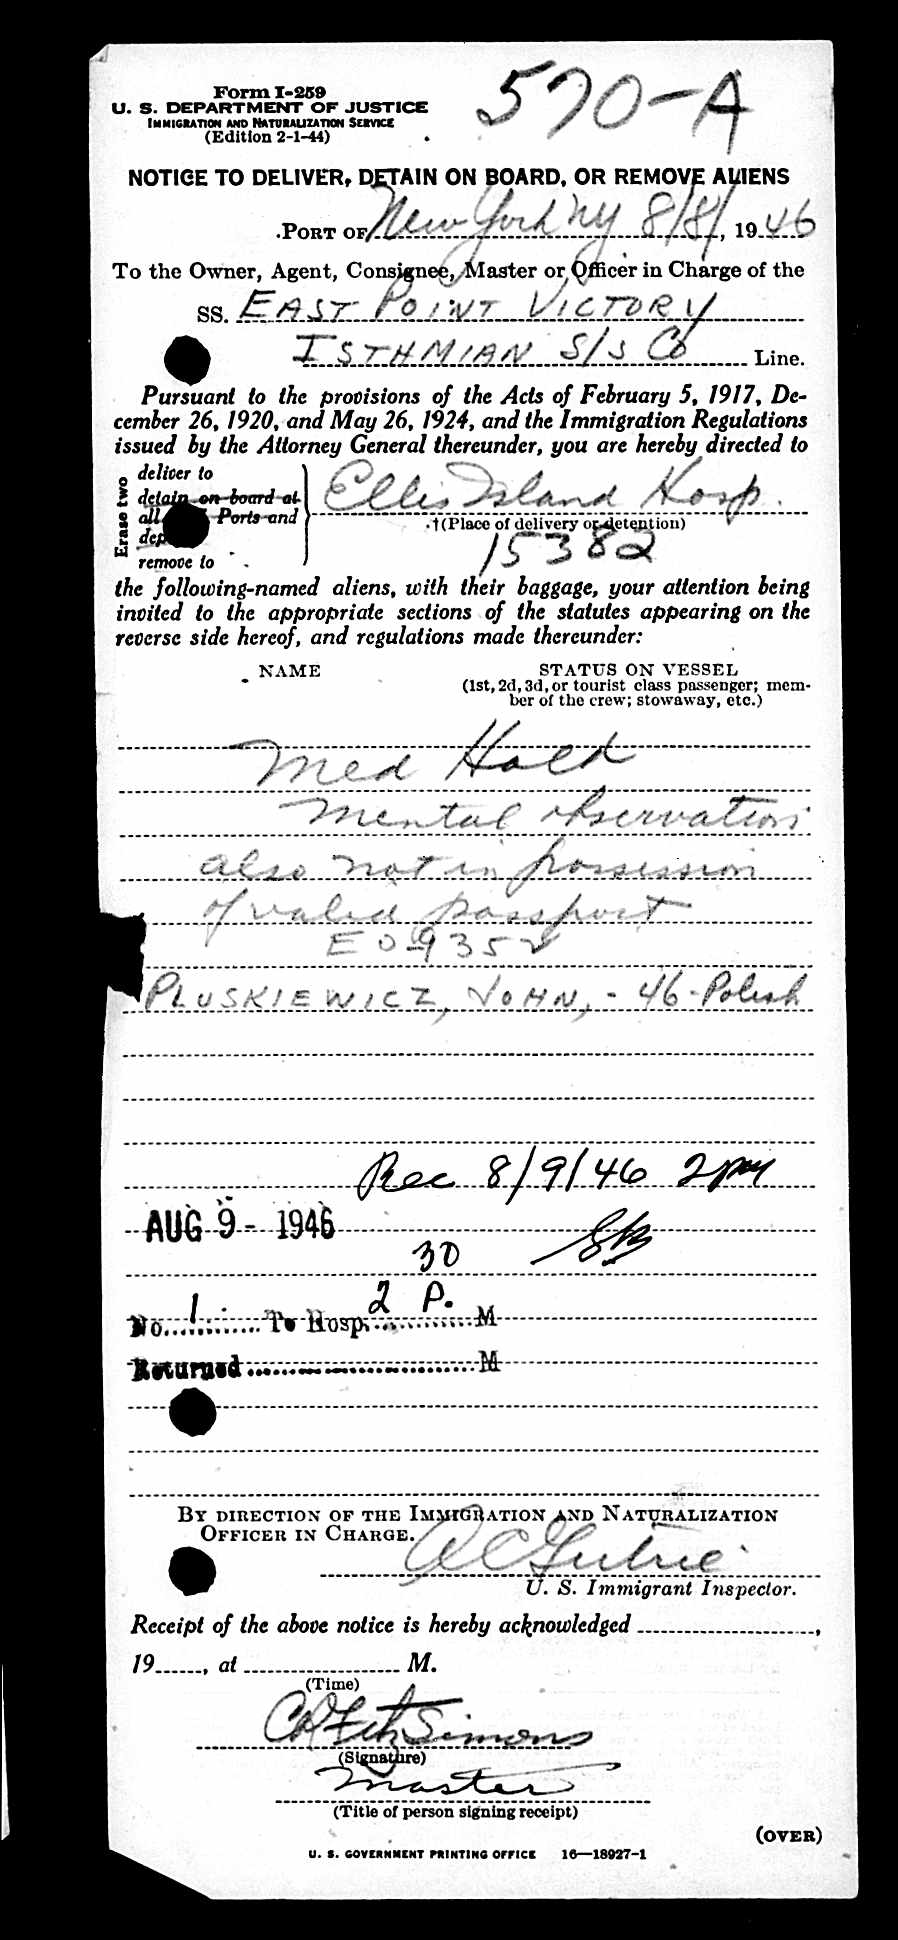 Form I-259
570-A
U. S. DEPARTMENT OF JUSTICE
IMMIGRATION AND NATURALIZATION SERVICE
(Edition 2-1-44)
NOTICE TO DELIVER, DETAIN ON BOARD, OR REMOVE ALIENS
PORT OF New York NY 8/8/, 1946
To the Owner, Agent, Consignee, Master or Officer in Charge of the
SS. EAST POINT VICTORY
ISTHMIAN S/S Co Line.
Pursuant to the provisions of the Acts of February 5, 1917, De-
cember 26, 1920, and May 26, 1924, and the Immigration Regulations
issued by the Attorney General thereunder, you are hereby directed to
Erase two
deliver to
detain on board at
all Ports and
dep
remove to
Ellis Island Hosp.
†(Place of delivery or detention)
15382
the following-named aliens, with their baggage, your attention being
invited to the appropriate sections of the statutes appearing on the
reverse side hereof, and regulations made thereunder:
NAME
STATUS ON VESSEL
(1st, 2d, 3d, or tourist class passenger; mem-
ber of the crew; stowaway, etc.)
Med Hold
Mental observation
also not in possession
of valid passport
EO 9352
PLUSKIEWICZ, JOHN, - 46 - Polish
Rec 8/9/46 2pm
AUG 9 - 1946
30
No. 1 To Hosp. 2 P. M
Returned M
BY DIRECTION OF THE IMMIGRATION AND NATURALIZATION
OFFICER IN CHARGE.
U. S. Immigrant Inspector.
Receipt of the above notice is hereby acknowledged ,
19 , at M.
(Time)
CR FitzSimons
(Signature)
Master
(Title of person signing receipt)
(OVER)
U. S. GOVERNMENT PRINTING OFFICE 16—18927-1